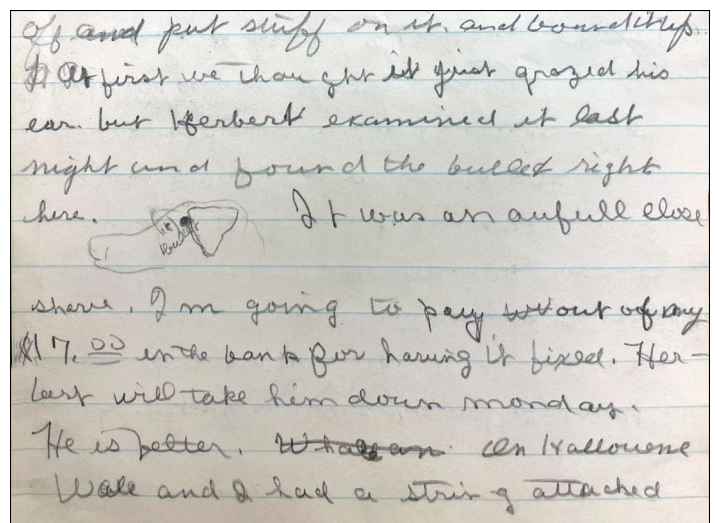 off and put stuff on it. and bound it up.
At first we thought it just grazed his
ear. but Herbert examined it last
night and found the bullet right
here. It was an aufull close
bullet
shave. I'm going to pay out of my
$17.00 in the bank for having it fixed. Her-
bert will take him down monday.
He is better. On Hallouene
Wale and I had a string attached